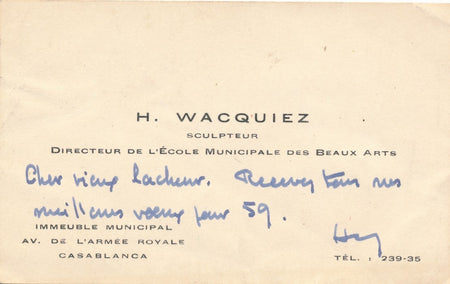 H. WACQUIEZ
SCULPTEUR
DIRECTEUR DE L'ÉCOLE MUNICIPALE DES BEAUX ARTS
Cher vieux Lacheur. Recevez tous mes
meilleurs voeux pour 59.
IMMEUBLE MUNICIPAL
AV. DE L'ARMÉE ROYALE
CASABLANCA
TÉL. : 239-35